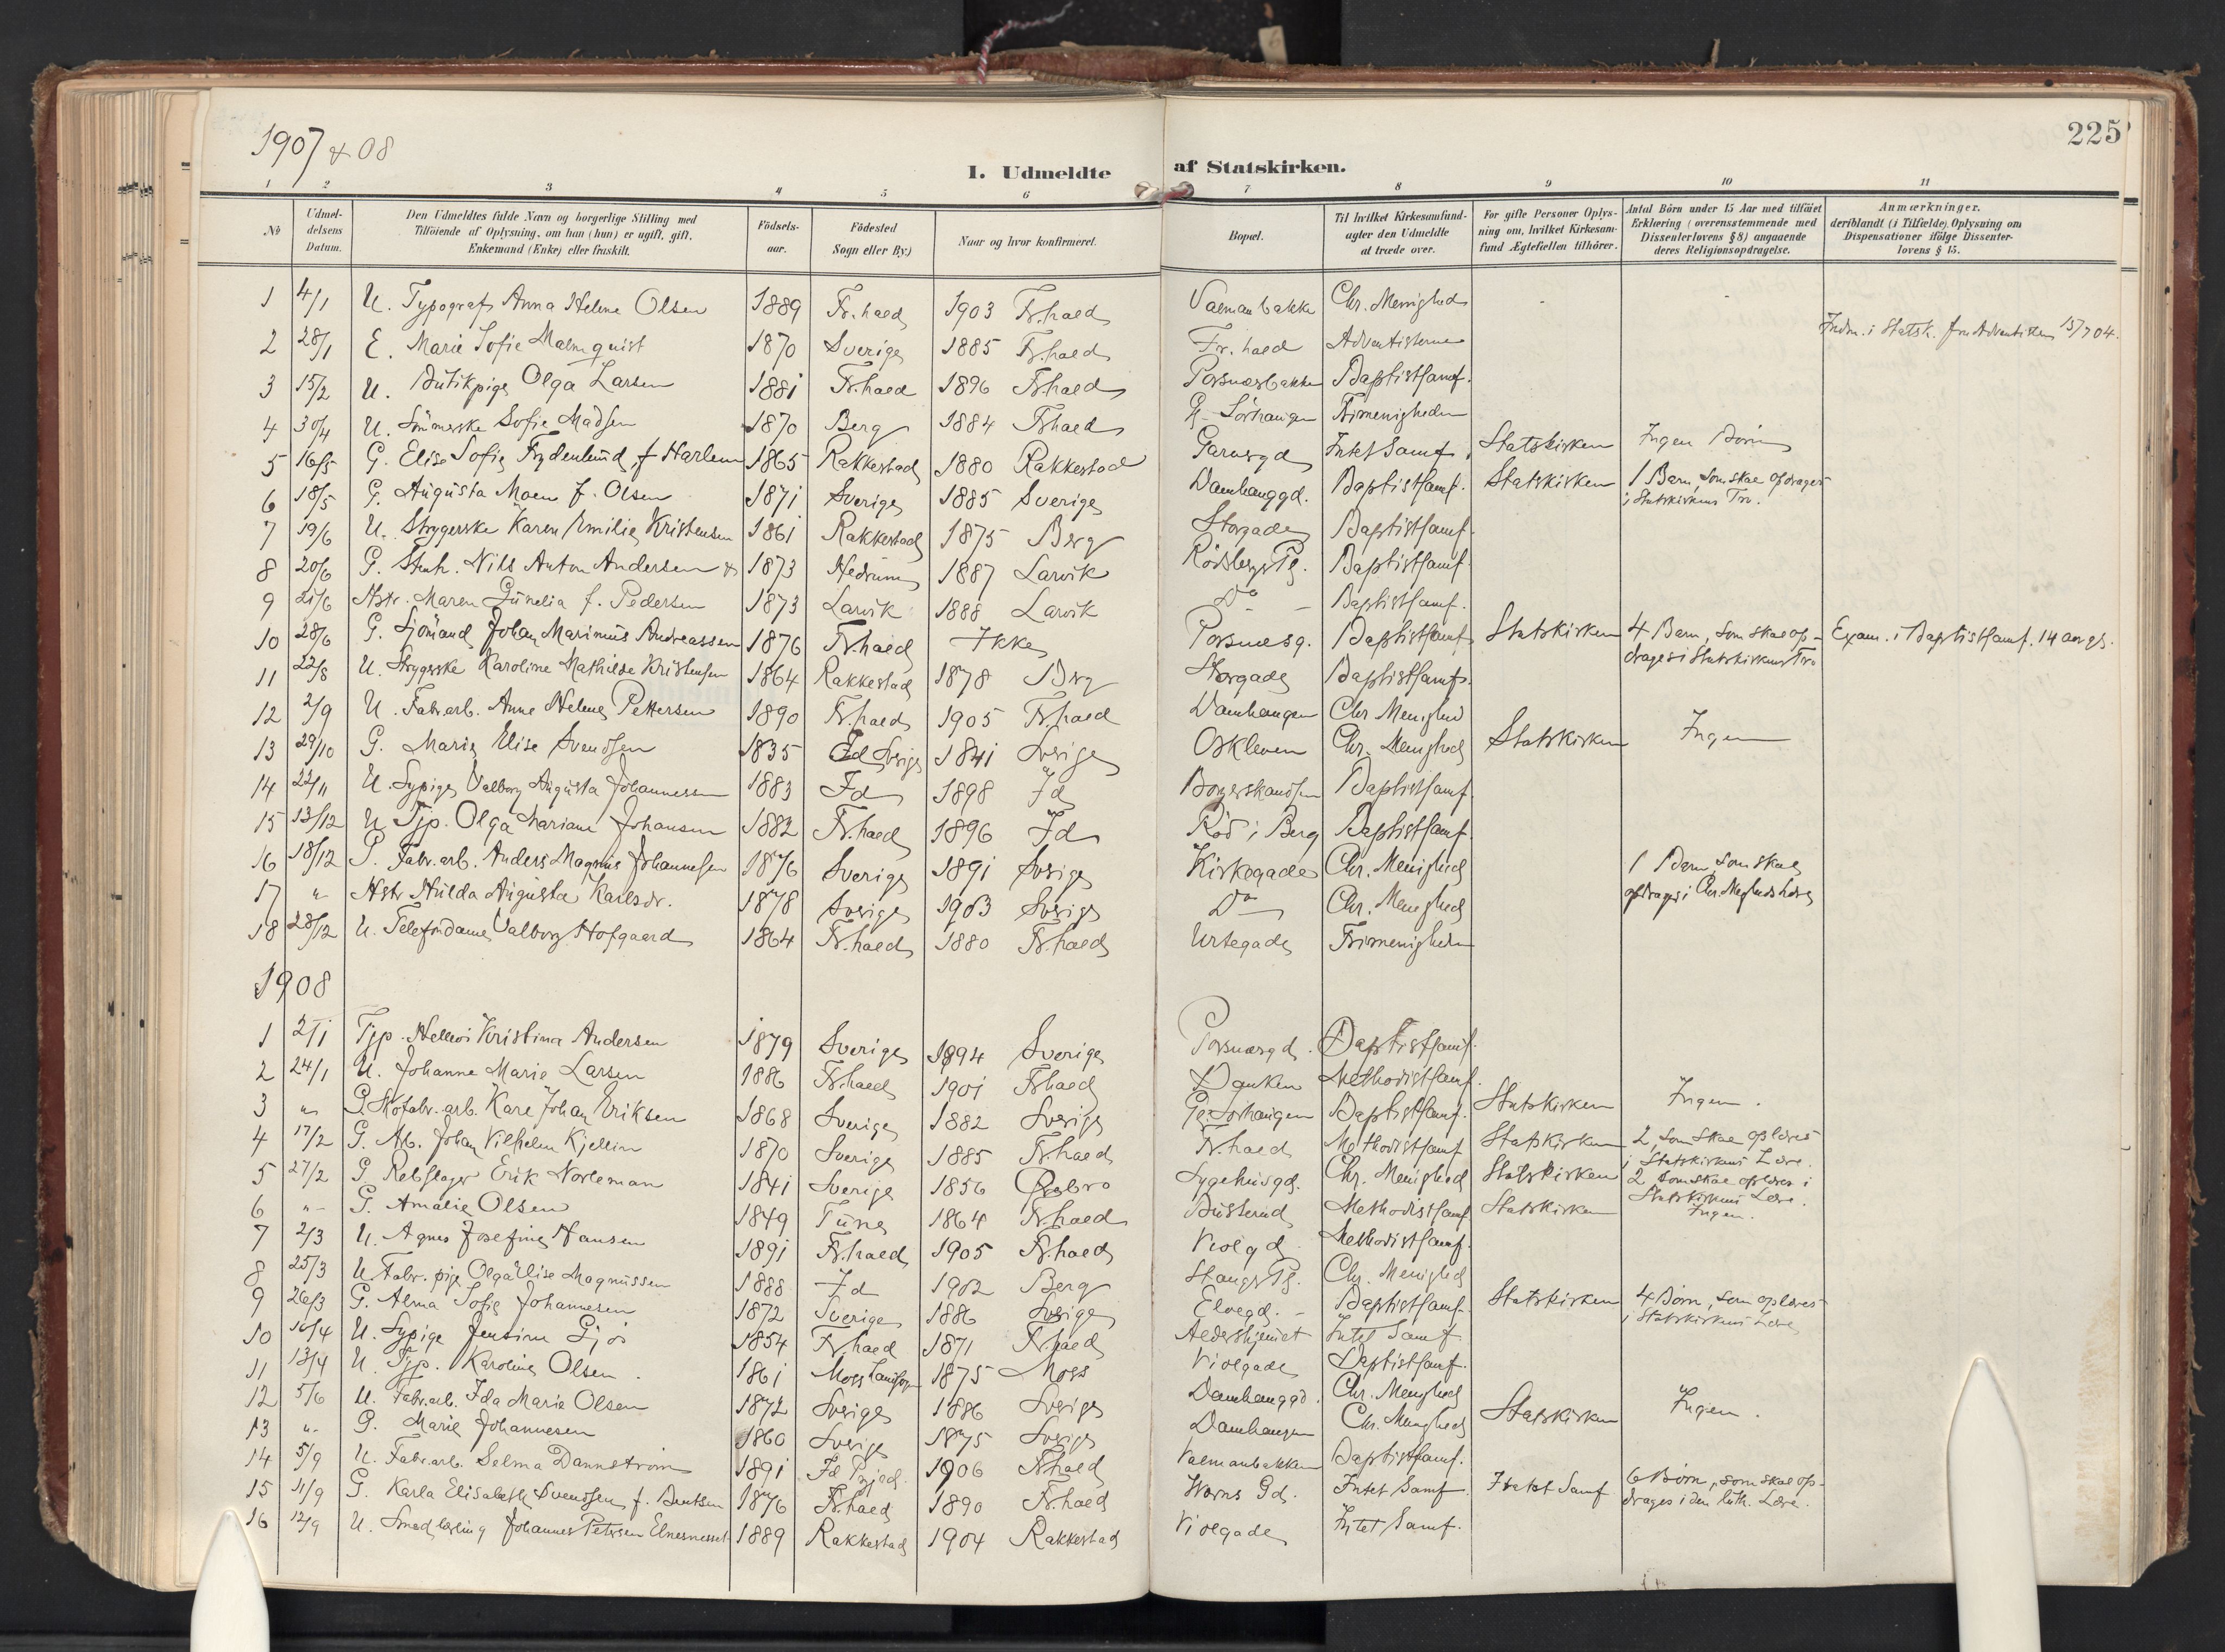 1907 & 08
225
1. Udmeldte af Statskirken.
1 2 3 4 5 6 7 8 9 10 11
No
Udmeldelsens Datum.
Den Udmeldtes fulde Navn og borgerlige Stilling med Tilföiende af Oplysning, om han (hun) er ugift, gift, Enkemand (Enke) eller fraskilt.
Födselsaar.
Födested Sogn eller By.)
Naar og hvor konfirmeret.
Bopæl.
Til hvilket Kirkesamfund agter den Udmeldte at træde over.
For gifte Personer Oplysning om, hvilket Kirkesamfund Ægtefællen tilhörer.
Antal Börn under 15 Aar med tilföiet Erklæring (overensstemmende med Dissenterlovens § 8) angaaende deres Religionsopdragelse.
Anmærkninger, deriblandt (i Tilfælde) Oplysning om Dispensationer ifölge Dissenterlovens § 15.
1 4/1 U. Typograf Anna Helene Olsen 1889 Fr.hald 1903 Fr.hald Valmanbakke Chr. Menighed
2 28/1 E. Marie Sofie Malmquist 1870 Sverige 1885 Fr.hald Fr.hald Adventisterne Indm. i Statsk. fra Adventisten 15/7 04.
3 15/2 U. Butikpige Olga Larsen 1881 Fr.hald 1896 Fr.hald Porsnesbakke Baptistsamf.
4 30/4 U. Sömmerske Sofie Madsen 1870 Berg 1884 Fr.hald Sörhaugen Frimenigheden
5 16/5 G. Elise Sofie Frydenlund f. Harlem 1865 Rakkestad 1880 Rakkestad Garvergd Intet Samf. Statskirken Ingen Börn
6 18/5 G. Augusta Moen f. Olsen 1871 Sverige 1885 Sverige Damhauggd. Baptistsamf. Statskirken 1 Barn, som skal opdrages
i Statskirkens Tro.
7 19/6 U. Strygerske Karen Emilie Kristensen 1861 Rakkestad 1875 Berg Storgade Baptistsamf.
8 20/6 G. Stenh. Nils Anton Andersen & 1873 Hedrum 1887 Larvik Rödsberg Pl. Baptistsamf.
9 21/6 Hstr. Maren Gunelia f. Pedersen 1873 Larvik 1888 Larvik Do Baptistsamf.
10 28/6 G. Sjömand Johan Marinius Andreassen 1876 Fr.hald Ikke Porsnesg. Baptistsamf. Statskirken 4 Barn, som skal op- Exam. i Baptistsamf. 14 aar gl.
drages i Statskirkens Tro
11 22/8 U. Strygerske Karoline Mathilde Kristensen 1864 Rakkestad 1878 Berg Storgade Baptistsamf.
12 2/9 U. Fabr.arb. Anne Helene Pettersen 1890 Fr.hald 1905 Fr.hald Damhaugen Chr Menighed
13 29/10 G. Marie Elise Svendsen 1835 Sverige 1841 Sverige Oskleven Chr. Menighed Statskirken Ingen
14 22/11 U. Sypige Valborg Augusta Johannessen 1883 Id 1898 Id Borgerskandsen Baptistsamf.
15 13/12 U Tjp. Olga Mariane Johansen 1882 Fr.hald 1896 Id Röd i Berg Baptistsamf.
16 18/12 G. Fabr.arb. Anders Magnus Johannesen 1876 Sverige 1891 Sverige Kirkegade Chr. Menighed 1 Barn, som skal
17 " Hstr Hulda Augusta Karlsdr. 1878 Sverige 1903 Sverige Do Chr. Menighed opdrages i Chr. Meghedshave
18 28/12 U. Telefondame Valborg Hofgaard 1864 Fr.hald 1880 Fr.hald Urtegade Frimenigheden
1908
1 2/1 Tjp. Kristina Andersen 1879 Sverige 1894 Sverige Porsnesgd. Baptistsamf.
2 24/1 U. Johanne Marie Larsen 1886 Fr.hald 1901 Fr.hald Banken Methodistsamf.
3 " G. Skofabr.arb. Karl Johan Eriksen 1868 Sverige 1882 Sverige Sörhaugen Baptistsamf. Statskirken Ingen.
4 17/2 G. Arb. Johan Vilhelm Kjellin 1870 Sverige 1885 Fr.hald Fr.hald Methodistsamf Statskirken 2, som skal oplæres
i Statskirkens Lære.
5 27/2 G. Rebslager Erik Norleman 1841 Sverige 1856 Örebro Sygehusgd. Chr. Menighed Statskirken 2 som skal oplæres i
Statskirkens Lære.
6 " G. Amalie Olsen 1849 Tune 1864 Fr.hald Busterud Methodistsamf Statskirken Ingen.
7 2/3 U. Agnes Josefine Hansen 1891 Fr.hald 1905 Fr.hald Violgd Methodistsamf.
8 25/3 U. Fabr.pige Olga Elise Magnussen 1888 Id 1902 Berg Stangs Pl. Chr. Menighed
9 26/3 G. Alma Sofie Johannesen 1872 Sverige 1886 Sverige Elvegd. Baptistsamf. Statskirken 4 Börn, som oplæres
i Statskirkens Lære
10 10/4 U. Sypige Jensine Gjös 1854 Fr.hald 1871 Fr.hald Aldershjemet Intet Samf
11 13/4 U. Tjp. Karoline Olsen 1861 Moss Landsogn 1875 Moss Violgade Baptistsamf.
12 5/6 U. Fabr.arb. Ida Marie Olsen 1872 Sverige 1886 Sverige Damhauggd. Chr. Menighed
13 " G. Marie Johannesen 1860 Sverige 1875 Sverige Damhaugen Chr. Menighed Statskirken Ingen.
14 5/9 U. Fabr.arb. Selma Dannström 1891 Id 1906 Fr.hald Valmanbakken Baptistsamf.
15 11/9 G. Karla Elisabeth Svendsen f. Berntsen 1876 Fr.hald 1890 Fr.hald Gd. Intet Samf. Intet Samf 6 Börn, som skal op-
drages i den luth. Lære.
16 12/9 U. Smedlærling Johannes Petersen 1889 Rakkestad 1904 Rakkestad Violgade Intet Samf.